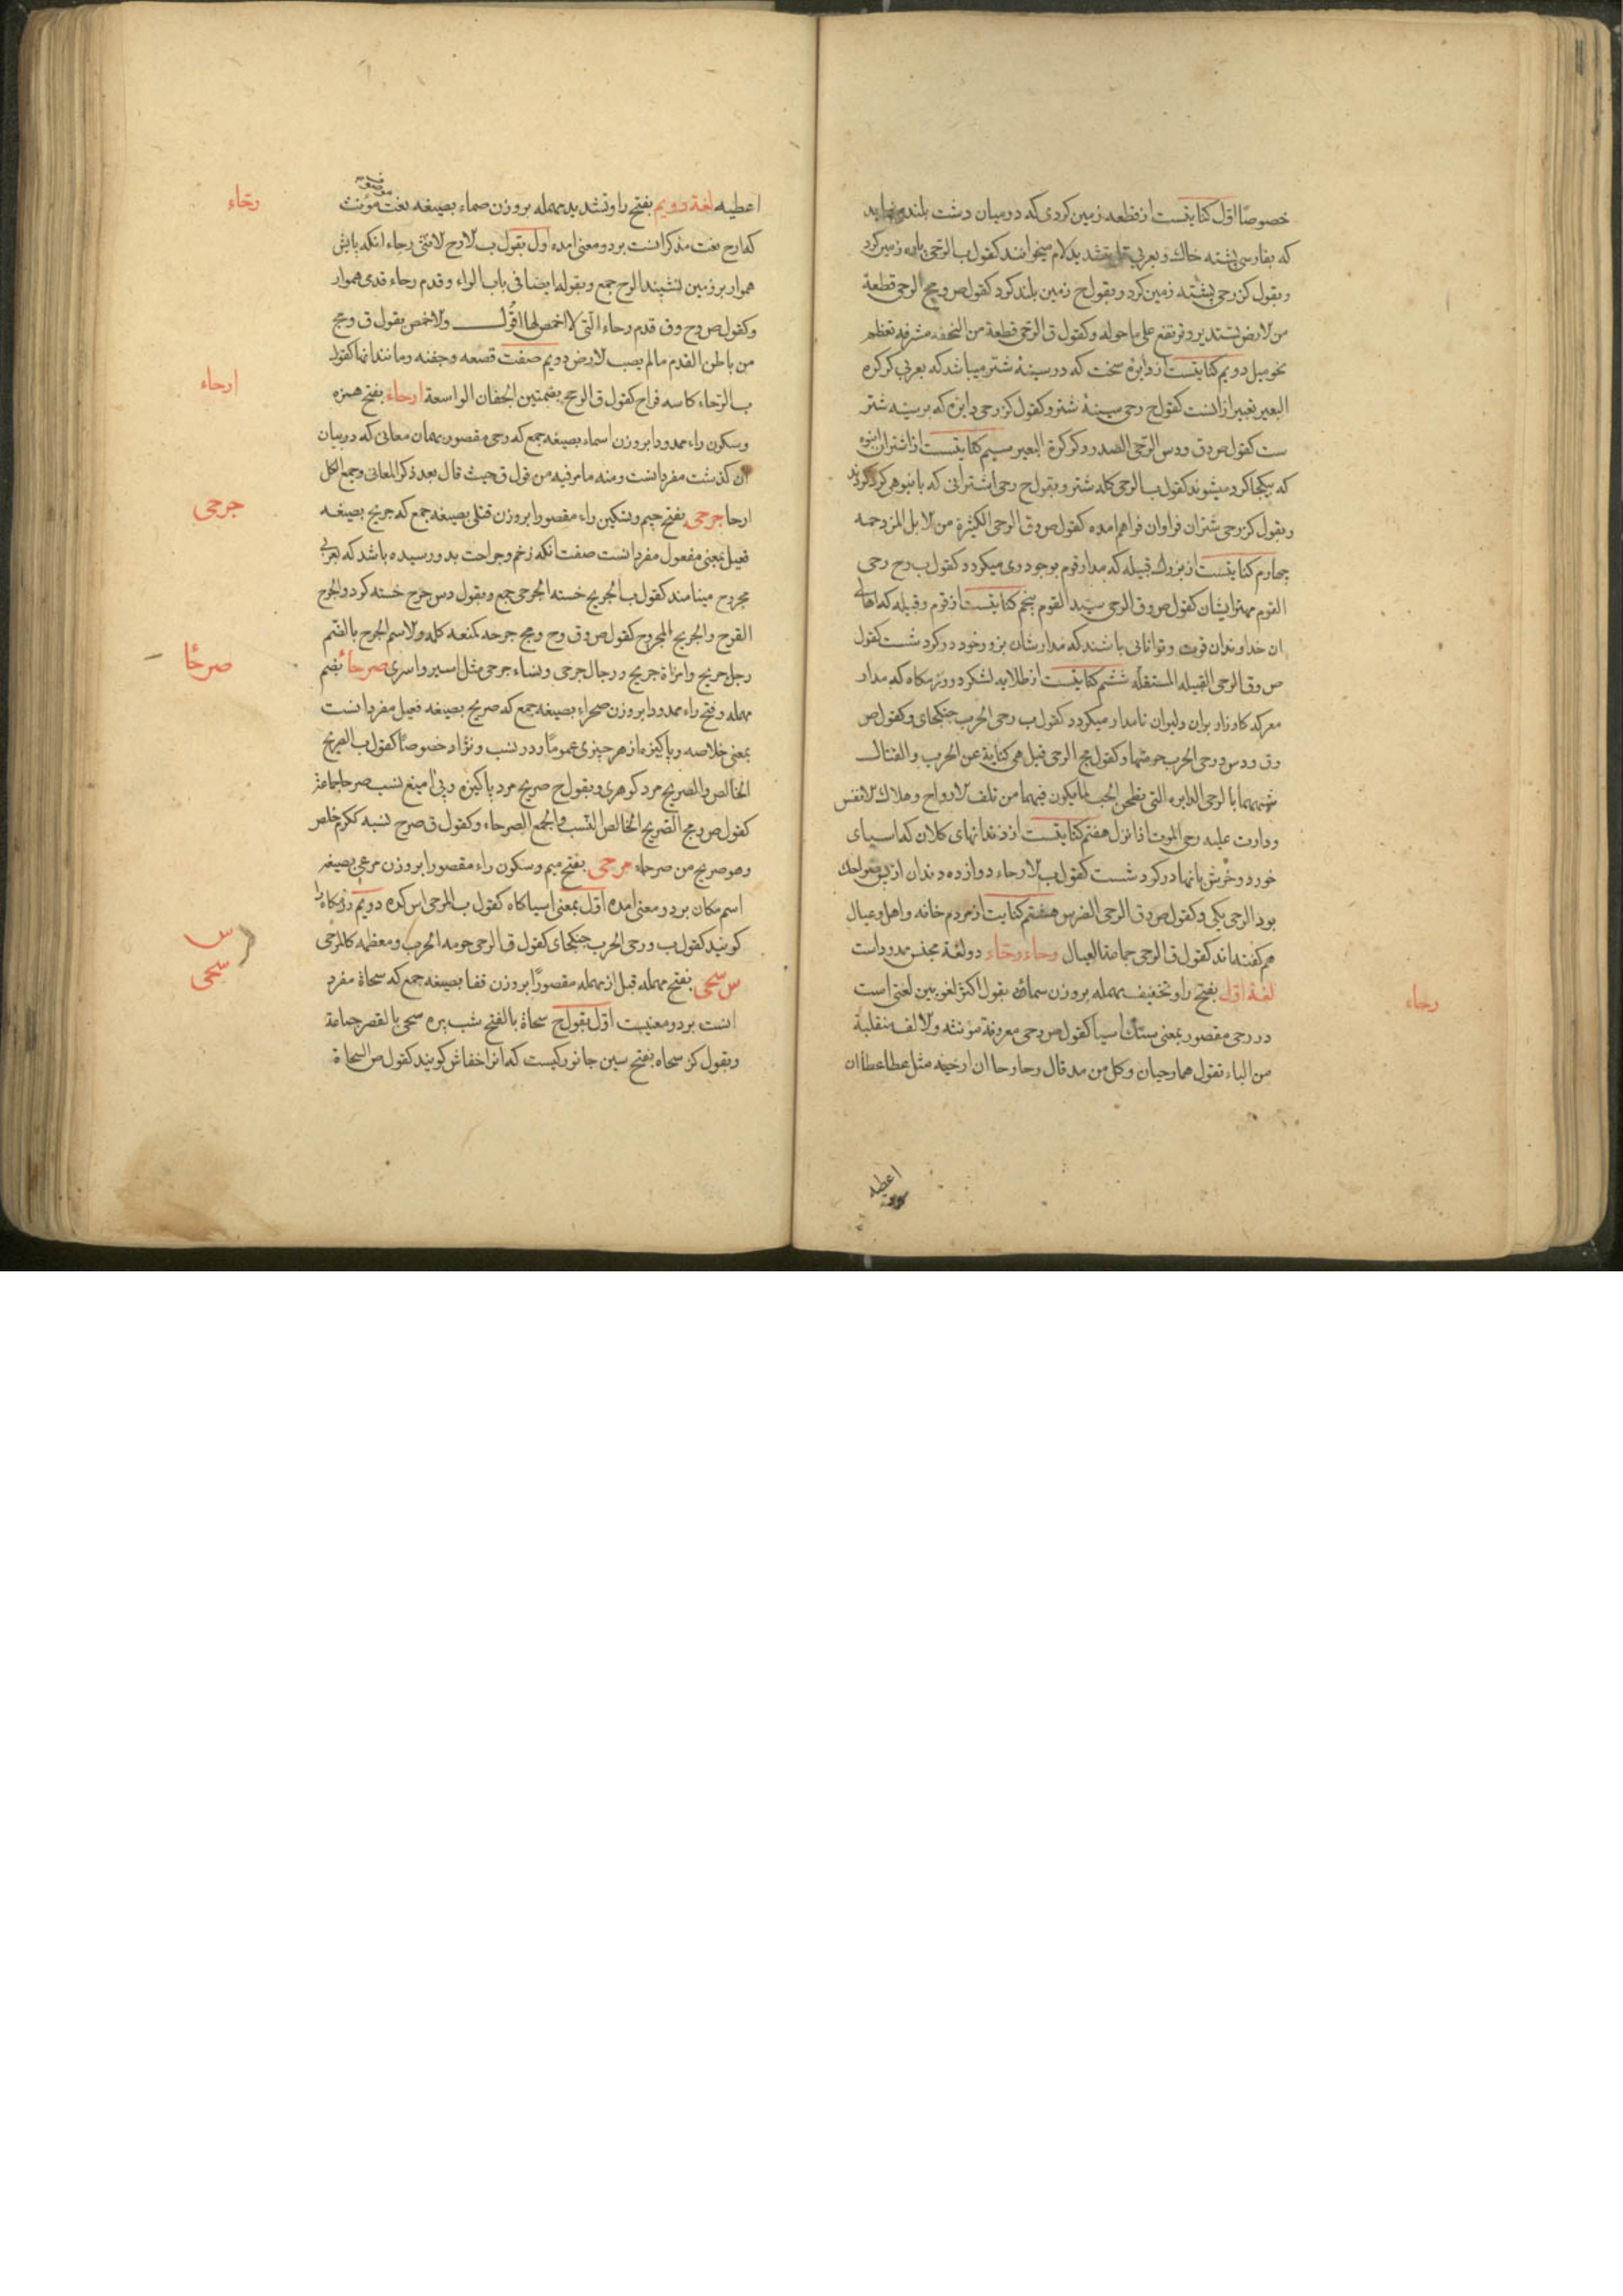 خصوصًا اوّل کنایتست از قطعه زمین کردی که در میان دشت بلند
که بفارسی پشته خاك و بعربی بتشدید لام میخوانند کقول ب الرّحی پاره زمین کرد
وبقول کز رحی پشته زمین کرد وبقول ح زمین بلند کرد کقول ص و مج الرحی قطعة
من الارض تستدیر وترتفع علی ماحوله وکقول ق الرّحی قطعة من النجفه مشرفه تعظم
نحو میل دویم کنایتست از دایرهٔ سخت که در سینهٔ شتر میباشد که بعربی کرکره
البعیر تعبیر از انست کقول ح رحی سینهٔ شتر وکقول کز رحی دایره که بر سینه شتر
ست کقول ص وق ودس الرّحی الصدر وکرکرة البعیر سیم کنایتست از اشتران انبوه
که بیکجا کرد میشوند کقول ب الرحی کله شتر وبقول ح رحی اشترانی که بانبوهی کرد کردند
وبقول کز رحی شتران فراوان فراهم امده کقول ص وق الرحی الکثیرة من الابل المزدحمه
چهارم کنایتست از بزرك قبیله که مدار قوم بوجود وی میکردد کقول ب وح رحی
القوم مهتر ایشان کقول ص وق الرحی سیّد القوم پنجم کنایتست از قوم وقبیله که اهالی
ان خداوندان قوت وتوانائی باشند که مدارشان بزور خود در کردشست کقول
ص وق الرحی القبیله المستقلّه ششم کنایتست از طلایه لشکر ورزمکاه که مدار
معرکه کارزار بوان دلیوان نامدار میکردد کقول ب رحی الحرب جنکجای وکقول ص
وق ودس ورحی الحرب حومتها وکقول مج الرحی قیل هی کنایة عن الحرب والقتال
شبهها بالرحی الدایره التی تطحن الحب لما یکون فیها من تلف الارواح وهلاك الانفس
ودارت علیه رحی الموت اذا نزل هفتم کنایتست از دندانهای کلان که اسیای
خورد وخُرش بانها در کردشست کقول ب الارحاء دوازده دندان از پس ضواحك
بود الرحی یکی وکقول ص وق الرحی الضرس هشتم کنایت از مردم خانه واهل وعیال
هم کفته‌اند کقول ق الرحی جماعة العیال رحاء ورحّاء دو لغة مجنس ممدود است
لغة اوّل بفتح را وتخفیف مهمله بروزن سماء بقول اکثر لغویین لغتی است
در رحی مقصور بمعنی سنك اسیا کقول ص رحی معروفة مؤنثه والالف منقلبة
من الیاء تقول هما رحیان وکل من مد قال رحا رحاان ارحیه مثل عطا عطاان
اعطیه
رحاء
اعطیه لغة دویم بفتح را وتشدید مهمله بروزن صماء بصیغه نعت مؤنث
که ارح نعت مذکر انست بر دو معنی امده اول بقول ب الارح لانثی رحاء انکه پایش
هموار بر زمین نشیند الرح جمع وبقوله ایضا فی باب الراء وقدم رحاء قدی هموار
وکقول ص وح وق قدم رحاء الّتی لا اخمص لها اقول والاخمص بقول ق ومج
من باطن القدم مالم یصب الارض دویم صفت قصعه وجفنه ومانند انها کقول
ب الرّحاء کاسه فراح کقول ق الرحح بضمتین الجفان الواسعة ارحاء بفتح همزه
وسکون راء ممدودا بروزن اسماء بصیغه جمع که رحی مقصور بهمان معانی که در بیان
ان کذشت مفرد انست ومنه مامر فیه من قول ق حیث قال بعد ذکر المعانی وجمع الکل
ارحا جرحی بفتح جیم وتسکین راء مقصورا بروزن قتلی بصیغه جمع که جریح بصیغه
فعیل بمعنی مفعول مفرد انست صفت انکه زخم وجراحت بدو رسیده باشد که بعربی
مجروح مینامند کقول ب الجریح خسته الجرحی جمع وبقول دس جرح خسته کرد والجرح
القرح والجریح المجروح کقول ص وق وح ومج جرحه کمنعه کلمه والاسم الجرح بالضّم
رجل جریح وامراة جریح ورجال جرحی ونساء جرحی مثل اسیر واسری صرحاء بضم
مهمله وفتح راء ممدودا بروزن صحراء بصیغه جمع که صریح بصیغه فعیل مفرد انست
بمعنی خلاصه وپاکیزه از هر چیزی عمومًا ودر نسب ونژاد خصوصًا کقول ب الصریح
الخالص والصریح مرد کوهری وبقول ح صریح مرد پاکیزه وبی امیغ نسب صرحا جماعة
کقول ص ومج الصّریح الخالص النّسب والجمع الصرحاء وکقول ق صرح نسبه ککرم خلص
وهو صریح من صرحاء مرحی بفتح میم وسکون راء مقصورا بروزن مرعی بصیغه
اسم مکان بر دو معنی امده اوّل بمعنی اسیاکاه کقول ب المرحی اس کده دویم رزمکاه را
کویند کقول ب ورحی الحرب جنکجای کقول ق الرحی حومه الحرب ومعظمه کالمرحی
س سحی بفتح مهمله قبل از مهمله مقصورًا بروزن قفا بصیغه جمع که سحاة مفرد
انست بر دو معنیست اوّل بقول ح سحاة بالفتح شب پره سحی بالقصر جماعة
وبقول کز سحاه بفتح سین جانورکیست که انرا خفاش کویند کقول ص السحاة
رحّاء
ارحاء
جرحی
صرحًا
س
سحی